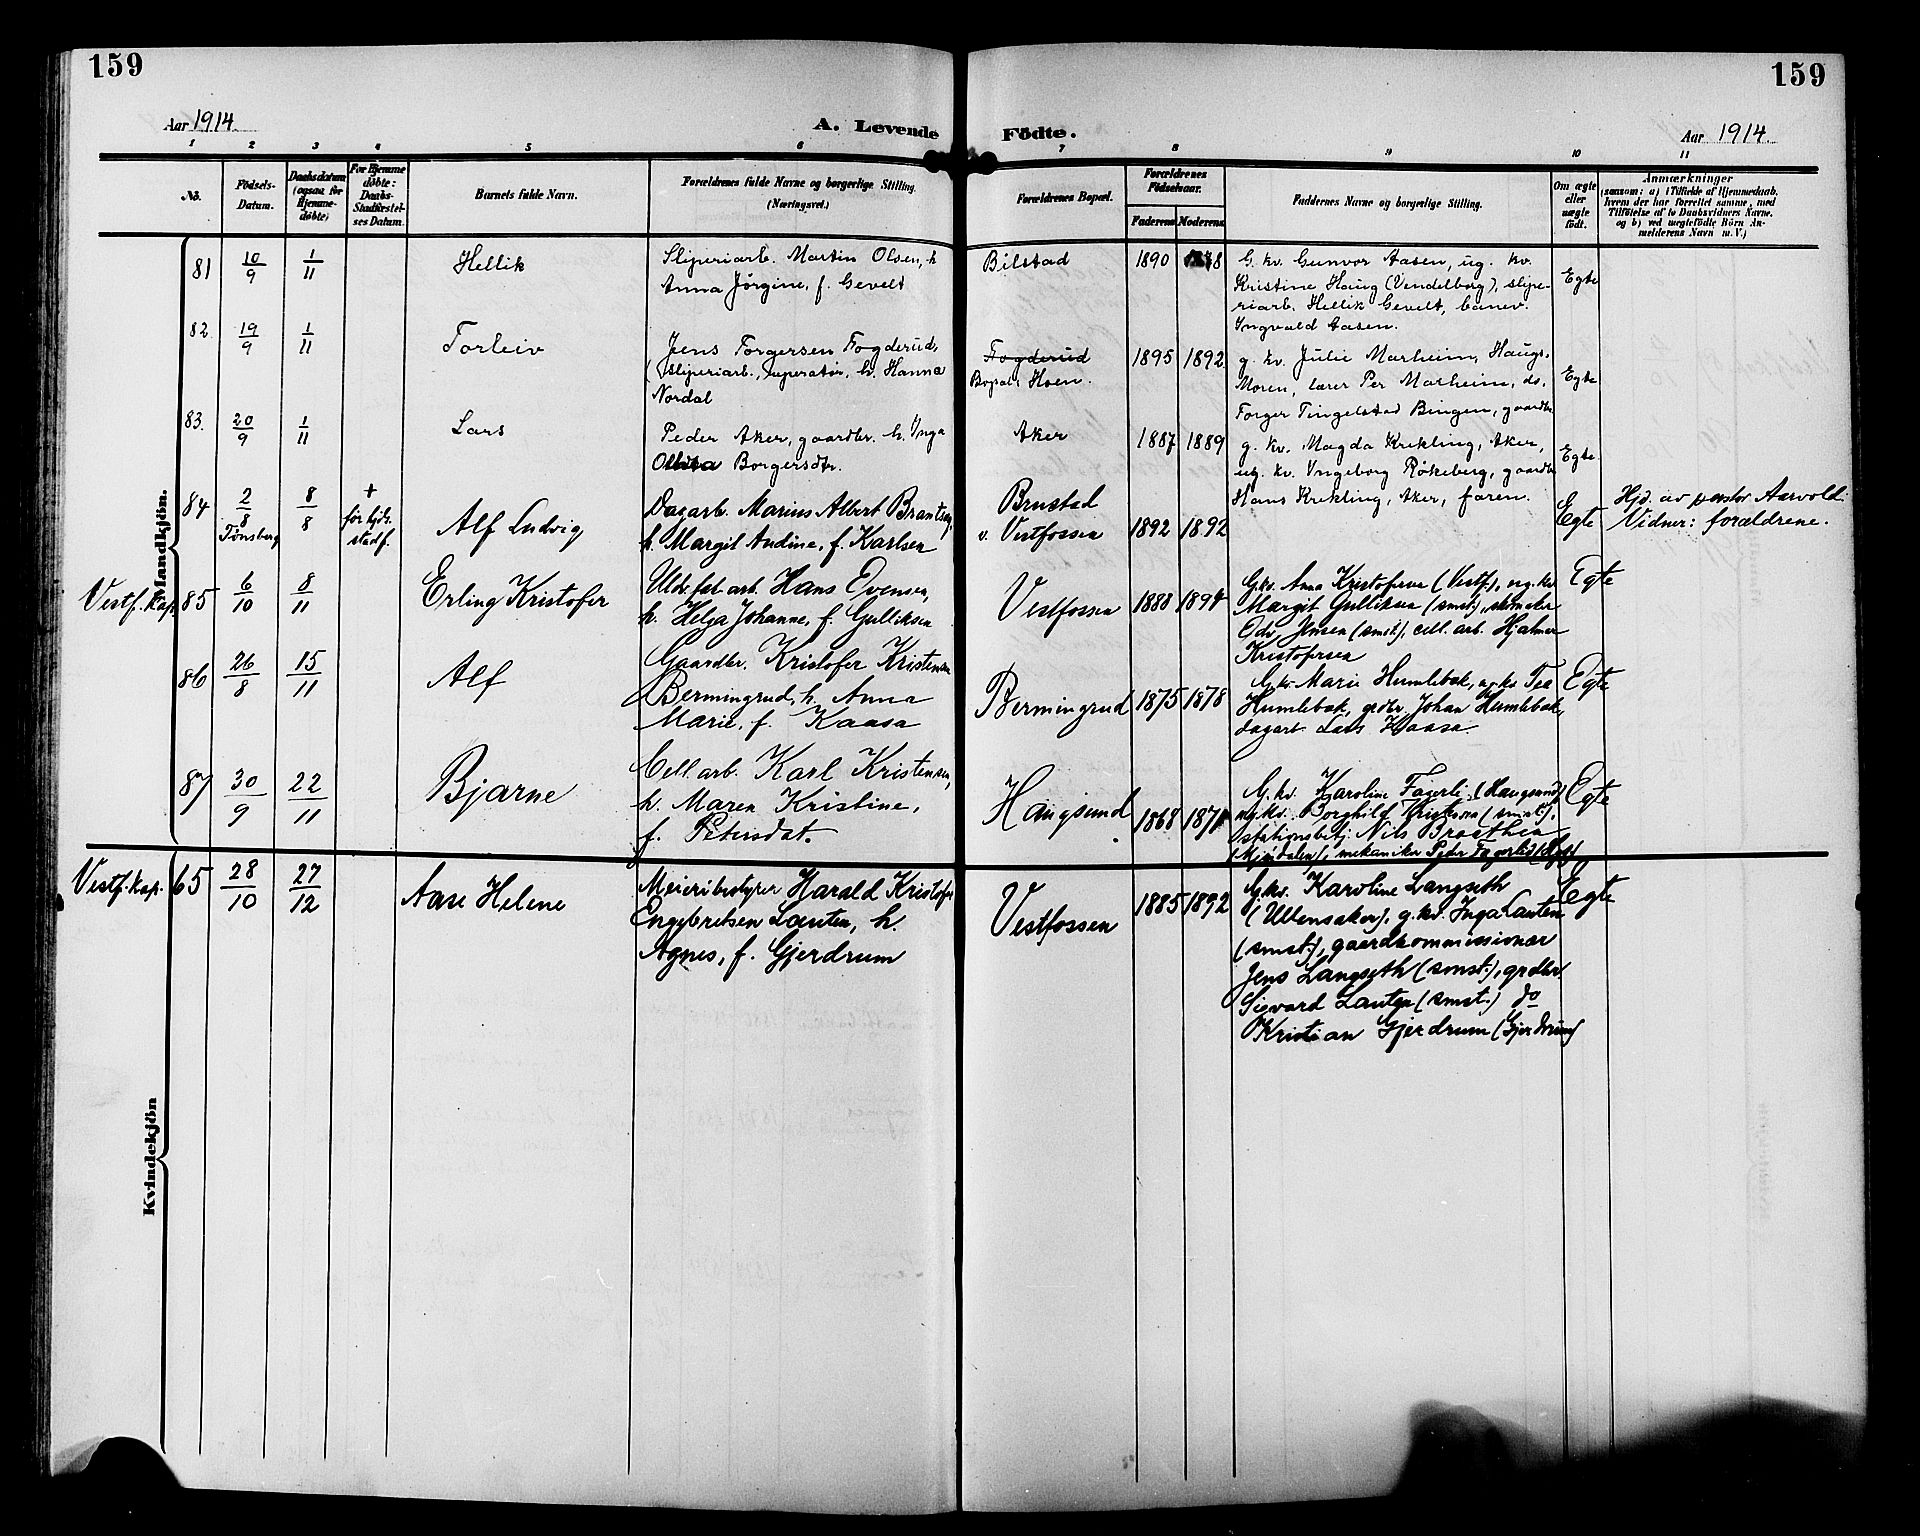 159
159
Aar 1914.
A. Levende Födte.
Aar 1914.
1 2 3 4 5 6 7 8 9 10 11
No.
Födsels-
Datum.
Daabsdatum
(ogsaa for
Hjemme-
döbte)
For Hjemme
döbte:
Daabs-
Stadfæstel-
ses Datum.
Barnets fulde Navn.
Forældrenes fulde Navne og borgerlige Stilling.
(Næringsvei.)
Forældrenes Bopæl.
Forældrenes
Födselsaar.
Faderens Moderens
Faddernes Navne og borgerlige Stilling.
Om ægte
eller
uægte
födt.
Anmærkninger
(saasom: a) i Tilfælde af Hjemmedaab,
hvem der har forrettet samme, med
Tilföielse af to Daabsvidners Navne,
og b) ved uægtefödte Börn An-
melderens Navn m. V.)
Mandkjön.
81 10/9 1/11 Hellik
Sliperiarb. Martin Olsen, h
Anna Jørgine, f. Gevelt
Bilstad 1890
G. kv. Gunvor Aasen, ug. kv.
Kristine Haug (Vendelborg), slipe-
riarb. Hellik Gevelt, banev.
Yngvald Aasen.
Egte
82. 19/9 1/11 Torleiv
Jens Torgersen Fogderud,
(sliperiarb., h. Hanna
Nordal
Fogderud
Bopæl: Hoen.
1895 1892.
g. kv. Julie Marheim, Haugs-
Moren, lærer Per Marheim, ds.
Torger Tingelstad Bingen, gaardbr.
Egte
83. 20/9 1/11 Lars
Peder Aker, gaardbr. h. Ynga
Borgersdtr.
Aker 1887 1889
g. kv. Magda Krekling, Aker,
ug. kv. Yngeborg Røkeberg, gaardbr
Hans Krekling, Aker, faren.
Egte.
84 2/8 Tönsberg 8/8 +
for hjds.
stadf.
Alf Ludvig
Dagarb. Marius Albert
h. Margit Andine, f. Karlsen
Brustad
v. Vestfossen
1892 1892
Egte
Hjd. av pastor Aarvold.
Vidner: forældrene.
Vestf. kap. 85 6/10 8/11 Erling Kristofer
Uldv. fab. arb. Hans Evensen,
h. Helga Johanne, f. Gulliksen
Vestfossen 1888 1894
G. kv. Anna Kristofersen (Vestf.), ug. kv.
Margit Gulliksen (smst.), skomaker
Odv. Jensen (smst.), cell. arb. Hjalmar
Kristofersen
Egte
86 26/8 15/11 Alf
Gaardbr. Kristofer Kristensen
Bermingrud, h. Anna
Marie, f. Kaasa
Bermingrud 1875 1878
G. kv. Marie Humlebæk, ug. kv Tea
Humlebæk, grdbr. Johan Humlebæk,
dagarb. Lars Kaasa.
Egte
87 30/9 22/11 Bjarne
Cell. arb. Karl Kristensen,
h. Maren Kristine,
f. Petersdat.
Haugsund 1868 1871
G. kv. Karoline Fagerli (Haugsund)
ug. kv. Borghild Kristensen (smst.),
stationsbetj. Nils Braathen
(Mjöndalen), mekaniker Peter Fagerli
Egte
Kvindekjön
Vestf. kap. 65 28/10 27/12 Aase Helene
Meieribestyrer Harald Kristofer
Engebretsen Lauten, h.
Agnes, f. Gjerdrum
Vestfossen 1885 1892
G. kv. Karoline Langseth
(Ullensaker), g. kv. Inga Lauten
(smst.), gaardkommissionær
Jens Langseth (smst.), grdbr.
Sigvard Lauten (smst.) do
Kristian Gjerdrum (Gjerdrum)
Egte